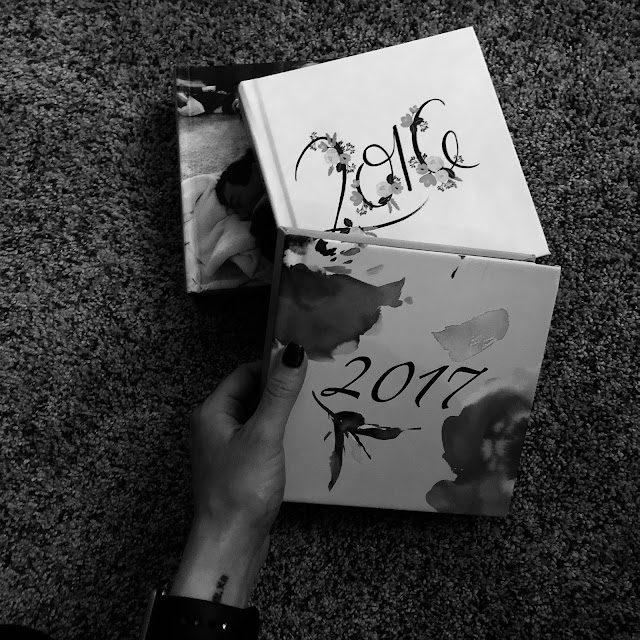 2016
2017